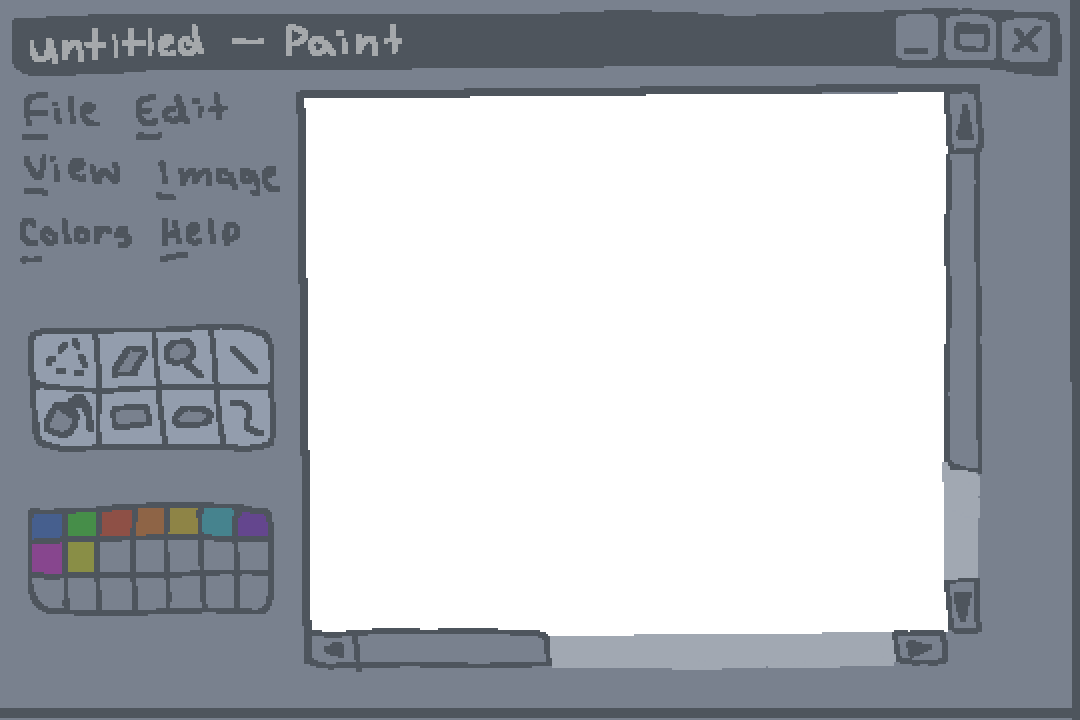 untitled — Paint
File Edit
View Image
Colors Help